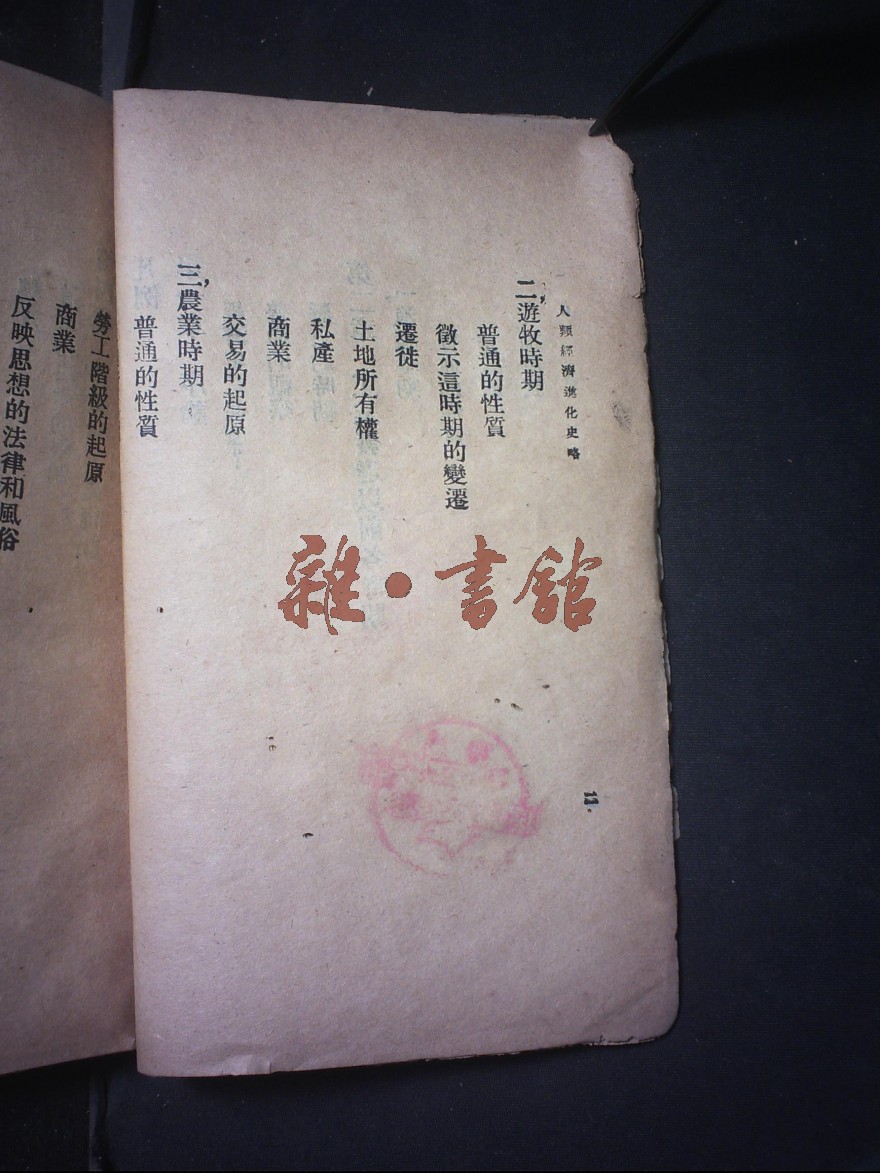 人類經濟進化史略
二，遊牧時期
普通的性質
徵示這時期的變遷
遷徙
土地所有權
私產
商業
交易的起原
三，農業時期
普通的性質
勞工階級的起原
商業
反映思想的法律和風俗
雜·書館